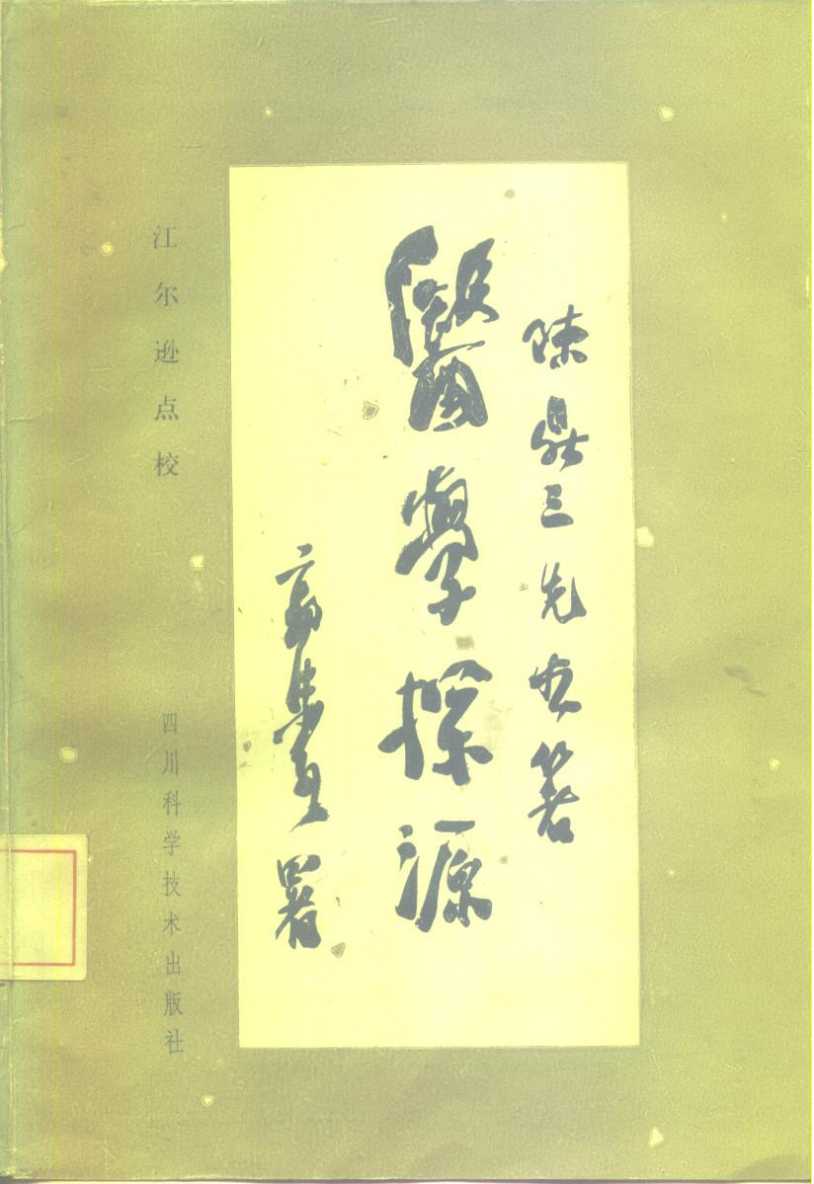 陳鼎三先生箸
醫學探源
署
江尔逊点校
四川科学技术出版社